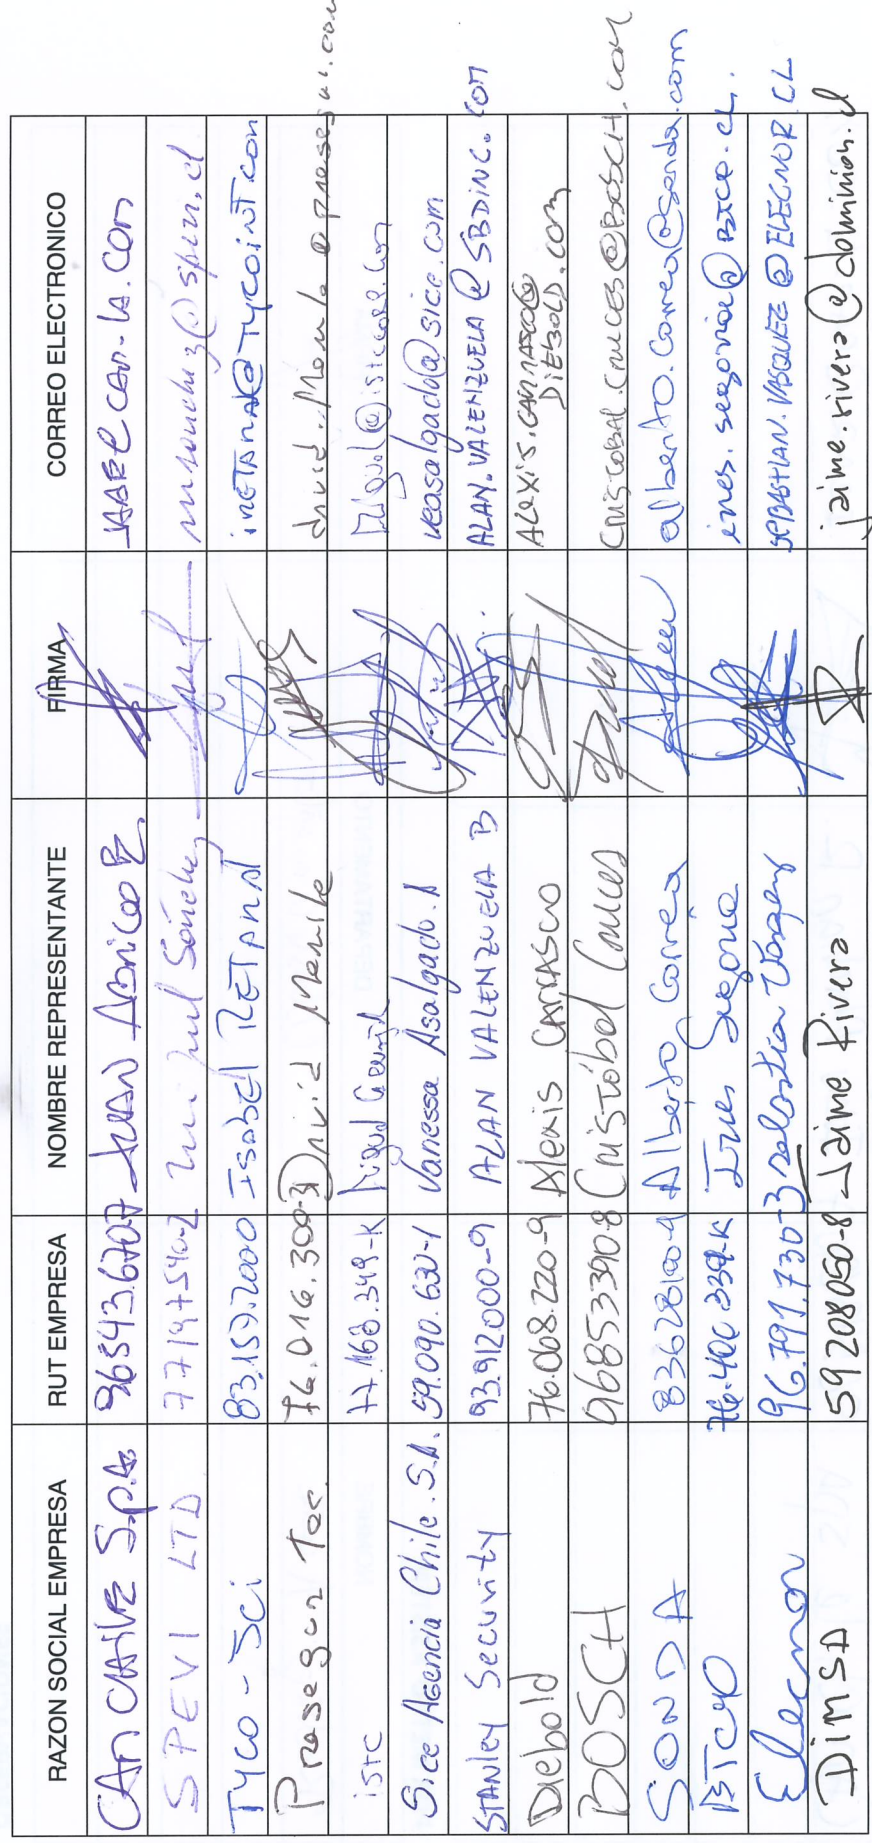 RAZON SOCIAL EMPRESA RUT EMPRESA NOMBRE REPRESENTANTE FIRMA CORREO ELECTRONICO
S.p.A. 96543670-7 JUAN
SPEVI LTD 77197540-2 Sánchez
TYCO - Sci 83.159.2000 Isabel RETANAL iRETANAL@TYCOINT.COM
Prosegur Tec. 76.016.300-3 David Menile
istc 77.168.349-K Miguel
Sice Agencia Chile. S.A. 59.090.630-1 Vanessa Asalgado. A veasalgado@sice.com
STANLEY Security 93.912000-9 ALAN VALENZUELA B ALAN.VALENZUELA@SBDINC.COM
Diebold 76.068.220-9 Alexis CARRASCO Alexis.CARRASCO@
DIEBOLD.com
BOSCH 96853390-8 Cristóbal Cruces CRISTOBAL.CRUCES@BOSCH.com
SONDA 83628100-4 Alberto Correa alberto.correa@sonda.com
Ines Segovia ines.segovia@
Elecnor 96.791.730-3 Sebastian Vasquez SEBASTIAN.VASQUEZ@ELECNOR.CL
DIMSA 59208050-8 Jaime Rivera jaime.rivera@dominion.cl